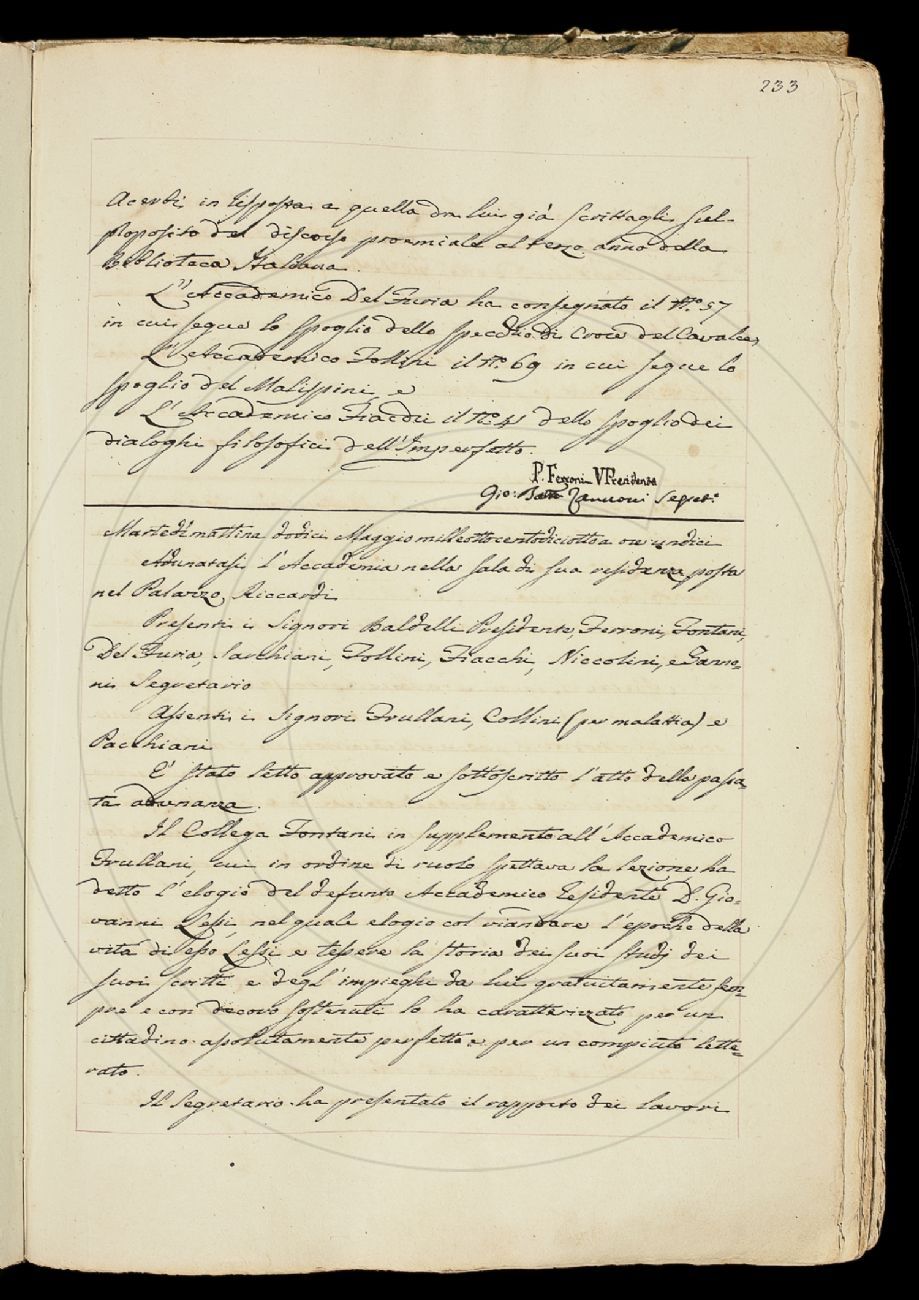 233
Acerbi in risposta a quella da lui già scrittagli sul
proposito del discorso proemiale al terzo anno della
Biblioteca Italiana.
L'Accademico Del Furia ha consegnato il N.º 57
in cui segue lo spoglio dello specchio di Croce del Cavalca,
L'Accademico Follini il N.º 69 in cui segue lo
spoglio del Malispini e
L'Accademico Fiacchi il N.º 41 dello spoglio dei
dialoghi filosofici dell'Imperfetto.
P. Ferroni VPresidente
Gio: Batta Zannoni Segret.º
Martedì mattina dodici Maggio mille ottocento diciotto a ore undici
Adunatasi l'Accademia nella sala di sua residenza posta
nel Palazzo Riccardi
Presenti i Signori Baldelli Presidente, Ferroni, Fontani,
Del Furia, Sarchiani, Follini, Fiacchi, Niccolini, e Zanno=
ni Segretario
Assenti i Signori Frullani, Collini (per malattia) e
Pacchiani
E' stato letto approvato e sottoscritto l'atto della passa
ta adunanza.
Il Collega Fontani in supplemento all'Accademico
Frullani, cui in ordine di ruolo spettava la lezione ha
detto l'elogio del defunto Accademico Residente D. Gio=
vanni Lessi, nel quale elogio col riandare l'epoche della
vita di esso Lessi e tessere la storia dei suoi studj dei
suoi scritti, e degl'impieghi da lui gratuitamente sem=
pre e con decoro sostenuti lo ha caratterizzato per un
cittadino assolutamente perfetto e per un compiuto lette=
rato.
Il Segretario ha presentato il rapporto dei lavori